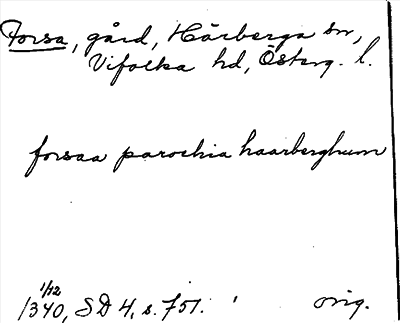 Forsa, gård, Härberga sn,
Vifolka hd, Österg. l.
forsaa parochia haarberghum
1/12
1340, SD 4, s. 751. orig.